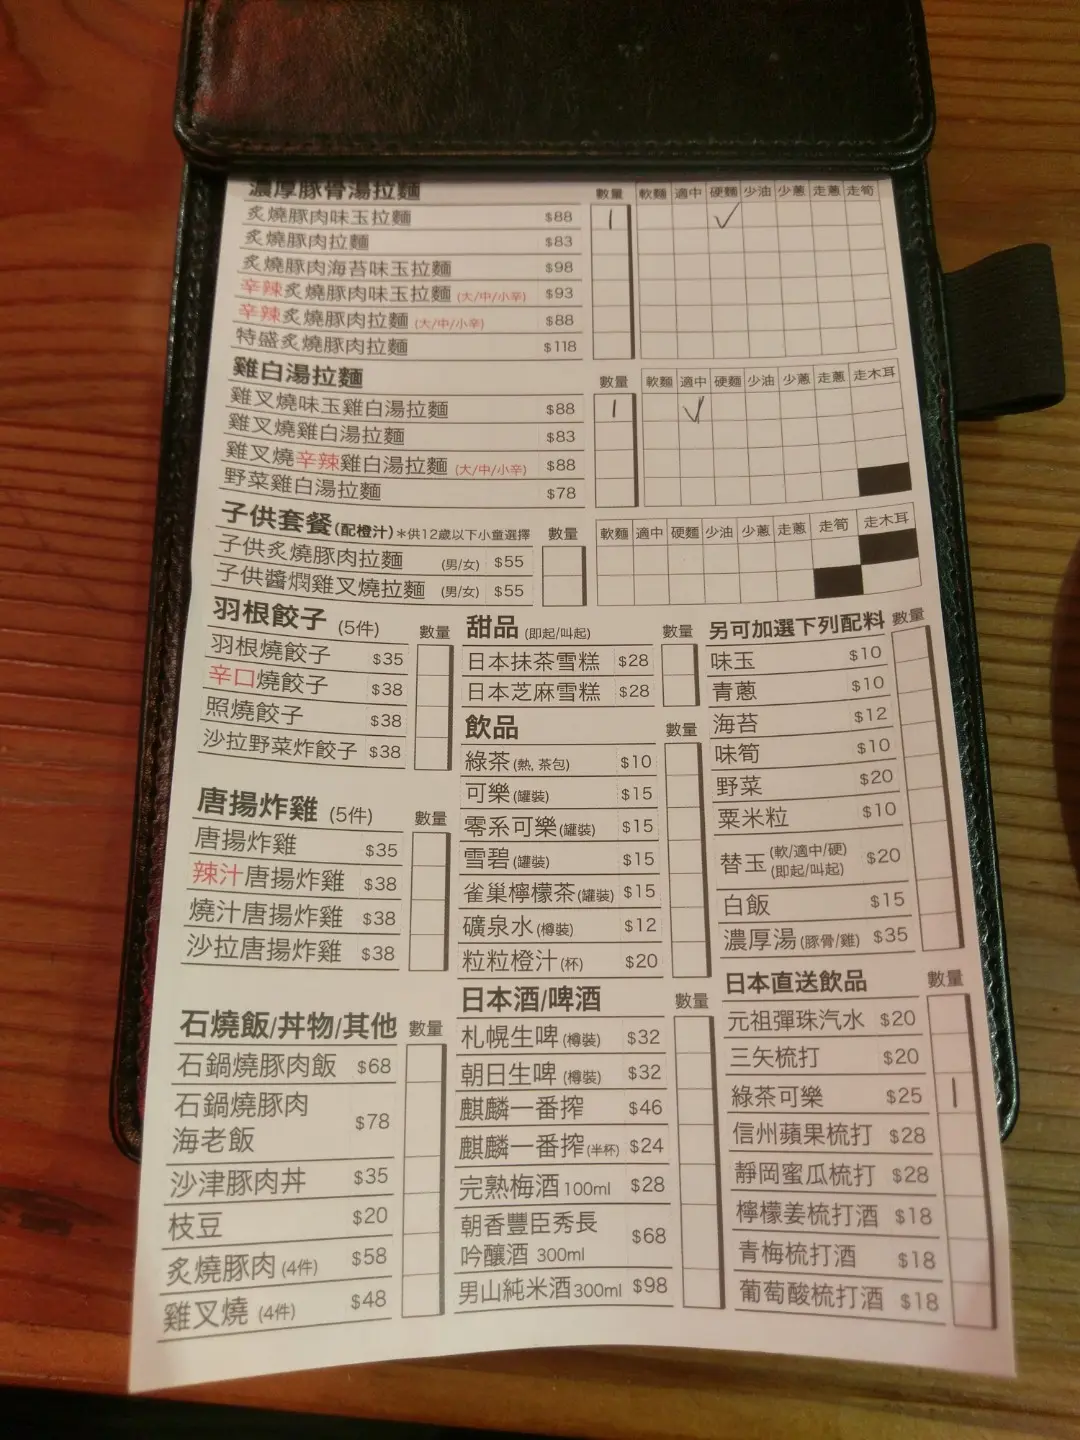 濃厚豚骨湯拉麵 數量 軟麵 適中 硬麵 少油 少蔥 走蔥 走筍
炙燒豚肉味玉拉麵 $88 1 ✓
炙燒豚肉拉麵 $83
炙燒豚肉海苔味玉拉麵 $98
辛辣炙燒豚肉味玉拉麵 (大/中/小辛) $93
辛辣炙燒豚肉拉麵 (大/中/小辛) $88
特盛炙燒豚肉拉麵 $118
雞白湯拉麵 數量 軟麵 適中 硬麵 少油 少蔥 走蔥 走木耳
雞叉燒味玉雞白湯拉麵 $88 1 ✓
雞叉燒雞白湯拉麵 $83
雞叉燒辛辣雞白湯拉麵 (大/中/小辛) $88
野菜雞白湯拉麵 $78
子供套餐(配橙汁)*供12歲以下小童選擇 數量 軟麵 適中 硬麵 少油 少蔥 走蔥 走筍 走木耳
子供炙燒豚肉拉麵 (男/女) $55
子供醬燜雞叉燒拉麵 (男/女) $55
羽根餃子 (5件) 數量
羽根燒餃子 $35
辛口燒餃子 $38
照燒餃子 $38
沙拉野菜炸餃子 $38
唐揚炸雞 (5件) 數量
唐揚炸雞 $35
辣汁唐揚炸雞 $38
燒汁唐揚炸雞 $38
沙拉唐揚炸雞 $38
石燒飯/丼物/其他 數量
石鍋燒豚肉飯 $68
石鍋燒豚肉
海老飯 $78
沙津豚肉丼 $35
枝豆 $20
炙燒豚肉 (4件) $58
雞叉燒 (4件) $48
甜品 (即起/叫起) 數量
日本抹茶雪糕 $28
日本芝麻雪糕 $28
飲品 數量
綠茶(熱, 茶包) $10
可樂(罐裝) $15
零系可樂(罐裝) $15
雪碧(罐裝) $15
雀巢檸檬茶(罐裝) $15
礦泉水(樽裝) $12
粒粒橙汁(杯) $20
日本酒/啤酒 數量
札幌生啤(樽裝) $32
朝日生啤(樽裝) $32
麒麟一番搾 $46
麒麟一番搾(半杯) $24
完熟梅酒100ml $28
朝香豐臣秀長
吟釀酒 300ml $68
男山純米酒300ml $98
另可加選下列配料 數量
味玉 $10
青蔥 $10
海苔 $12
味筍 $10
野菜 $20
粟米粒 $10
替玉 (軟/適中/硬) (即起/叫起) $20
白飯 $15
濃厚湯(豚骨/雞) $35
日本直送飲品 數量
元祖彈珠汽水 $20
三矢梳打 $20
綠茶可樂 $25 1
信州蘋果梳打 $28
靜岡蜜瓜梳打 $28
檸檬姜梳打酒 $18
青梅梳打酒 $18
葡萄酸梳打酒 $18